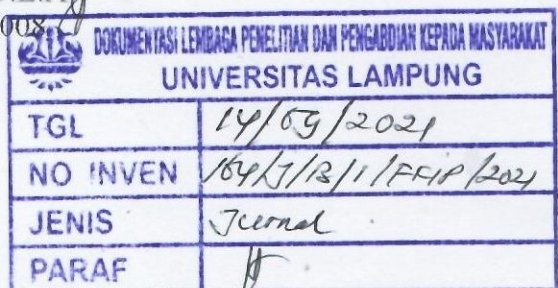 008
DOKUMENTASI LEMBAGA PENELITIAN DAN PENGABDIAN KEPADA MASYARAKAT
UNIVERSITAS LAMPUNG
TGL 14/09/2021
NO INVEN 164/J/B/1/FKIP/2021
JENIS Jurnal
PARAF